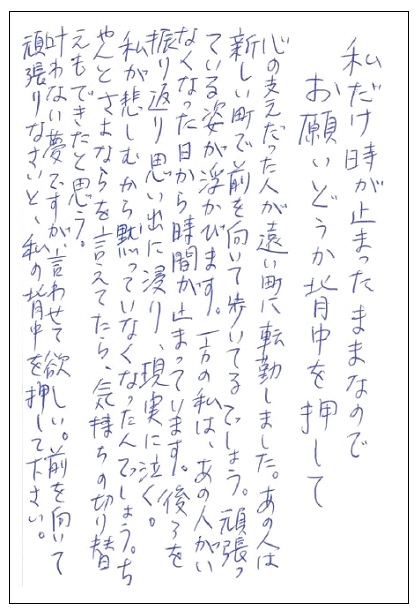 私だけ時が止まったままなので
お願いどうか背中を押して
心の支えだった人が遠い町に転勤しました。あの人は
新しい町で前を向いて歩いてるでしょう。頑張っ
ている姿が浮かびます。一方の私は、あの人がい
なくなった日から時間が止まっています。後ろを
振り返り思い出に浸り、現実に泣く。
私が悲しむから黙っていなくなったんでしょう。ち
ゃんとさよならを言えてたら、気持ちの切り替
えもできたと思う。
叶わない夢ですが、言わせて欲しい。前を向いて
頑張りなさいと、私の背中を押して下さい。